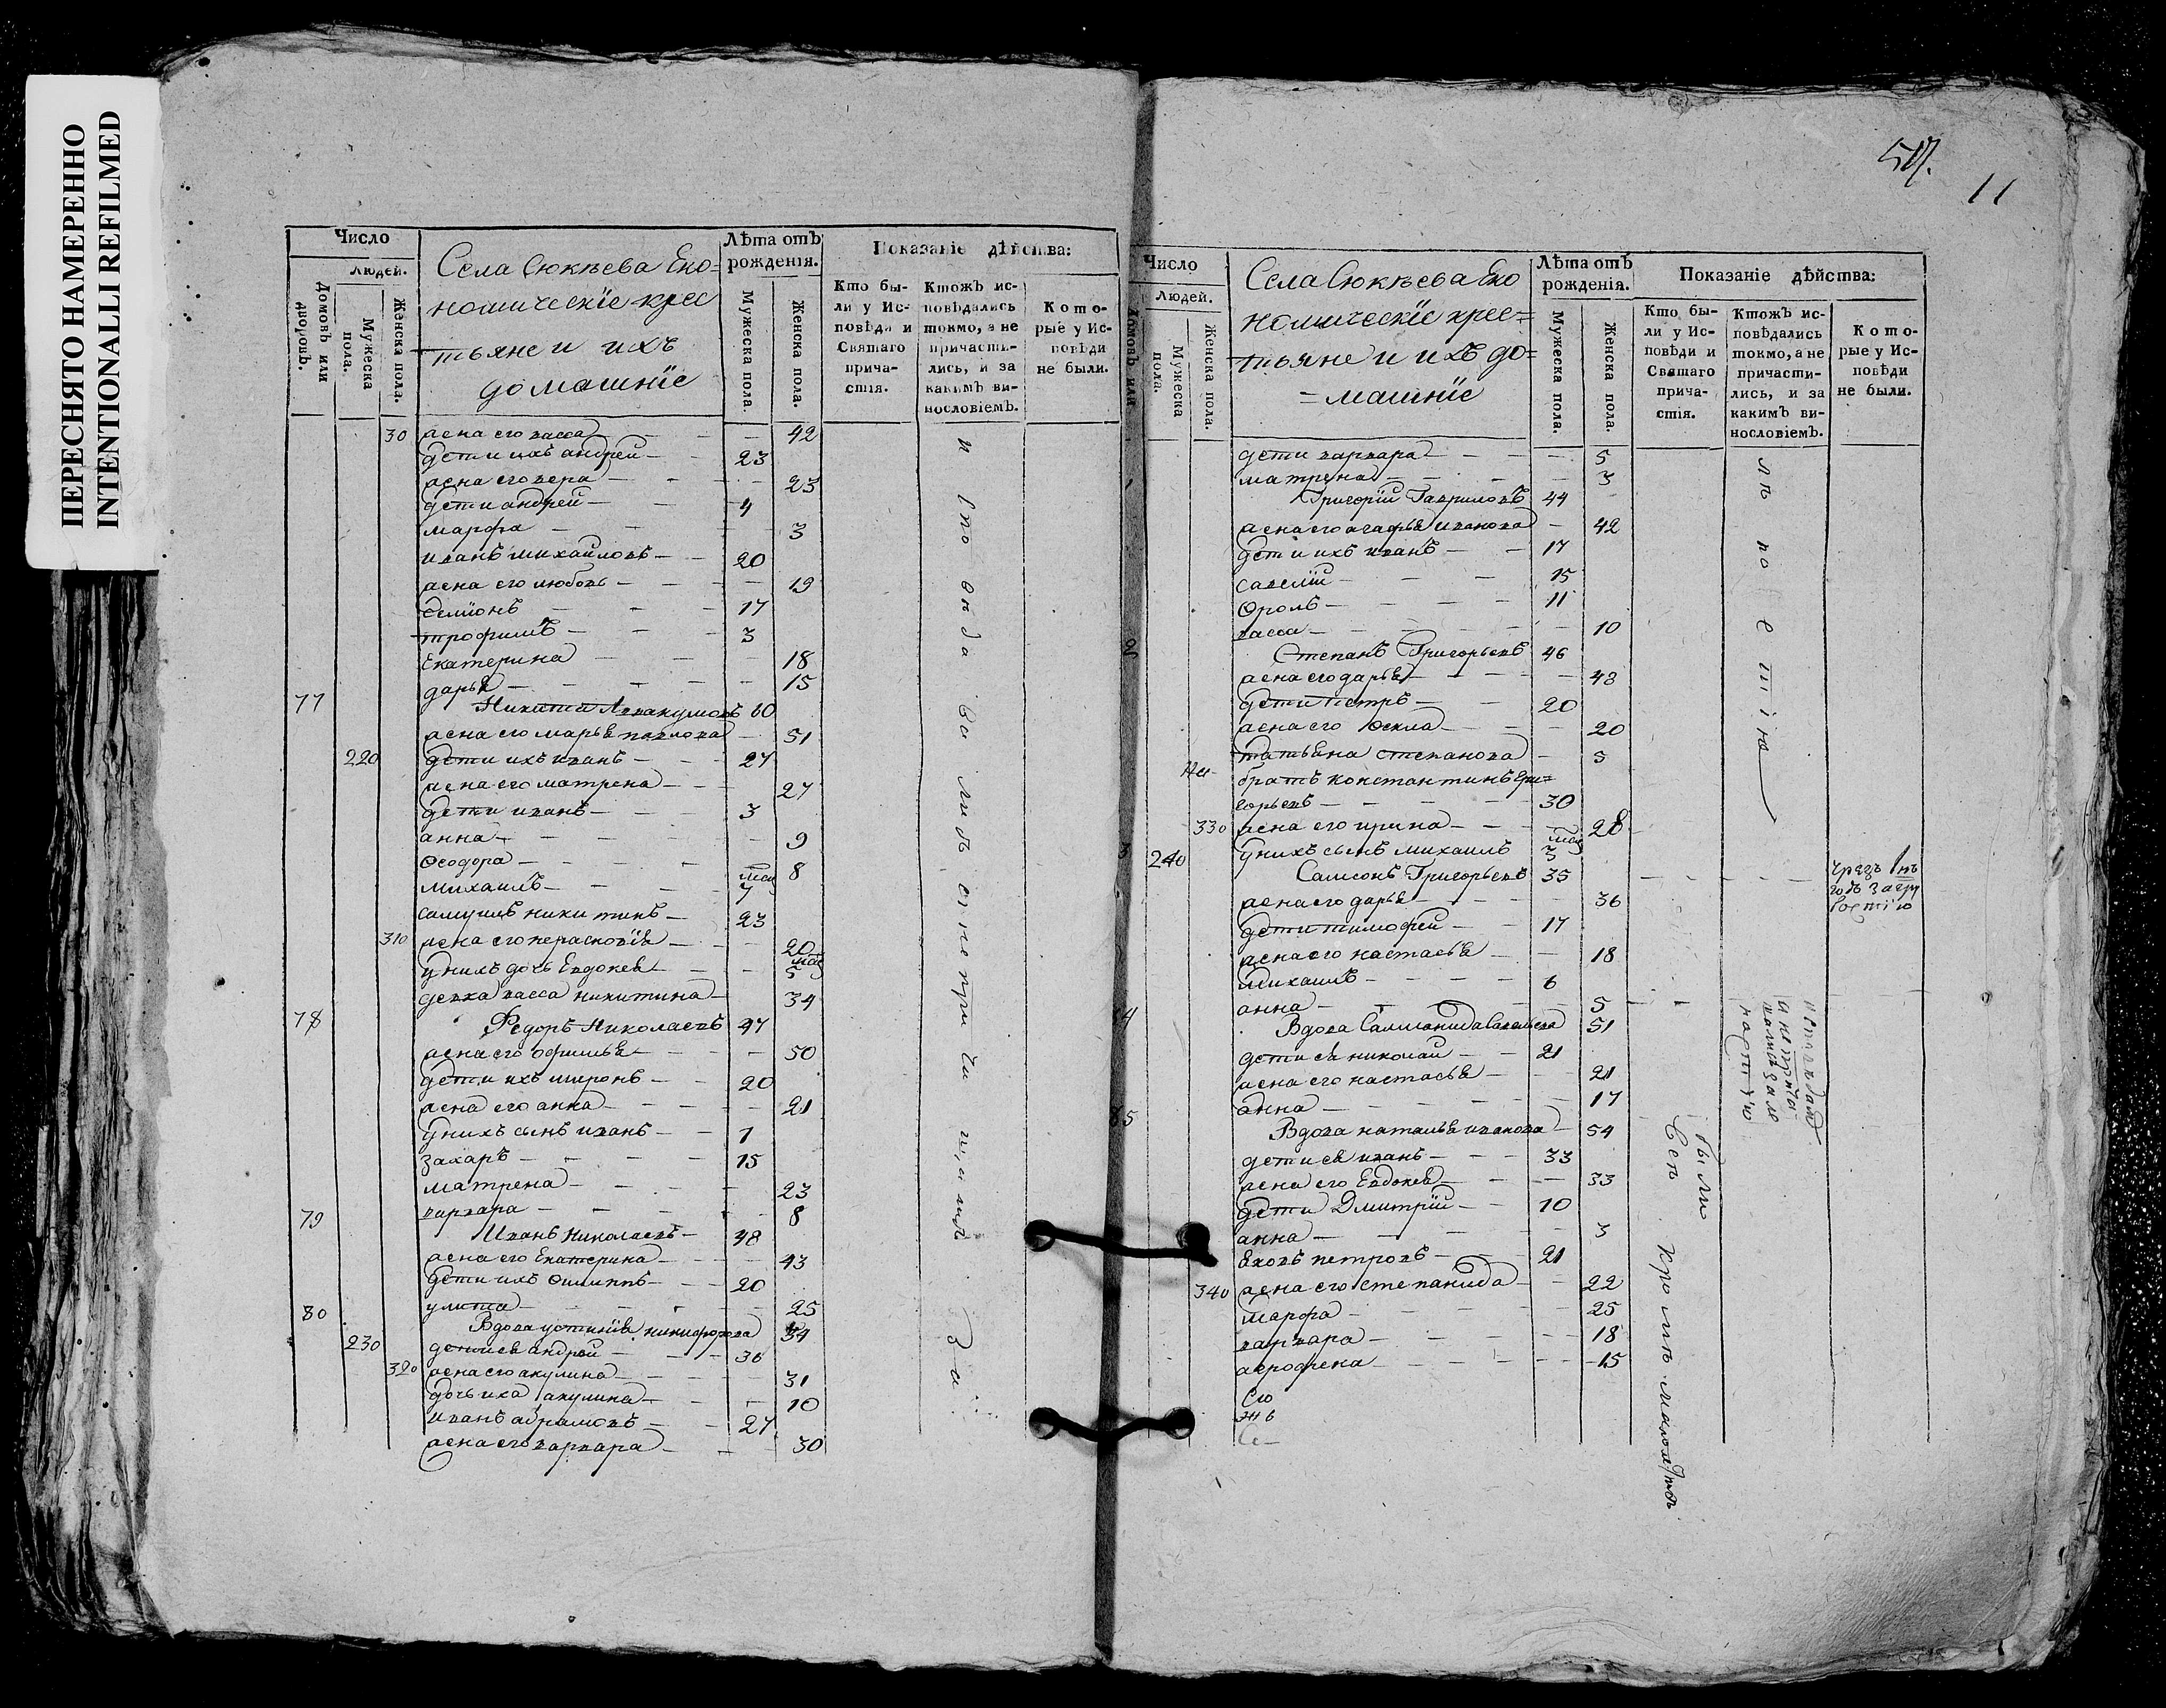 ПЕРЕСНЯТО НАМЕРЕННО
INTENTIONALLI REFILMED
Число
Людей.
Домовъ или дворовъ.
Мужеска пола.
Женска пола.
Села Сюкѣева Еко=
номическïе крес
тьяне и ихъ
домашнïе
Лѣта отъ
рожденія.
Мужеска пола.
Женска пола.
Показаніе дѣйства:
Кто бы-
ли у Ис-
повѣди и
Святаго
прича-
стія.
Ктожъ ис-
повѣдались
токмо, а не
причасти-
лись, и за
какимъ ви-
нословіемъ.
Кото-
рые у Ис-
повѣди
не были.
30 жена его васса — 42
дети ихъ андрей — 23
жена его вера — 23
дети андрей — 4
марфа — 3
иванъ михайловъ — 20
жена его любовь — 19
семïонъ — 17
трофимъ — 3
Екатерина — 18
дарья — 15
77 Никита Аввакумовъ 60
жена его марья павлова — 51
220 дети ихъ иванъ — 27
жена его матрена — 27
дети иванъ — 3
анна — 9
Ѳеодора — 8
михаилъ — мес 7
самуилъ никитинъ — 23
310 жена его парасковïя — 20
у нихъ дочь Евдокея — мес 5
девка васса никитина — 34
78 Федоръ Николаевъ 47
жена его офимья — 50
дети ихъ миронъ — 20
жена его анна — 21
у нихъ сынъ иванъ — 1
захаръ — 15
матрена — 23
варвара — 8
79 Иванъ Николаевъ — 48
жена его Екатерина — 43
дети ихъ Филиппъ — 20
улита — 25
80 Вдова устинïя никифорова 54
230 дети ея андрей — 36
320 жена его акулина — 31
дочь ихъ акулина — 10
иванъ абрамовъ — 27
жена его варвара — 30
и спо вѣ да ва лись а не при ча щ а лись За
517.
11
Число
Людей.
Домовъ или
Мужеска пола.
Женска пола.
Села Сюкѣева Еко
номическïе крес=
тьяне и ихъ до=
=машнïе
Лѣта отъ
рожденія.
Мужеска пола.
Женска пола.
Показаніе дѣйства:
Кто бы-
ли у Ис-
повѣди и
Святаго
прича-
стія.
Ктожъ ис-
повѣдались
токмо, а не
причасти-
лись, и за
какимъ ви-
нословіемъ.
Кото-
рые у Ис-
повѣди
не были.
дети варвара — 5
матрена — 3
Григорïй Гавриловъ 44
жена его агафья иванова — 42
дети ихъ иванъ — 17
савелïй — 15
Ѳролъ — 11
васса — 10
2 Степанъ Григорьевъ 46
жена его дарья — 48
дети петръ — 20
жена его Ѳекла — 20
татьяна степанова — 5
братъ константинъ гри=
горьевъ — 30
330 жена его ирина — 28
3 240 у нихъ сынъ михаилъ мес 3
Самсонъ Григорьевъ 35
жена его дарья — 36
дети тимофей — 17
жена его настасья — 18
михаилъ — 6
анна — 5
4 Вдова Саломонида Савельева 51
дети ея николай — 21
жена его настасья — 21
анна — 17
85 Вдова наталья иванова — 54
дети ея иванъ — 33
жена его Евдокея — 33
дети Дмитрïй — 10
анна — 3
яковъ петровъ — 21
340 жена его степанида — 22
марфа — 25
варвара — 18
афрофена — 15
Сю
ѣев
Се
лѣ но с т ï ю
Чрезъ 1нъ
годъ за гру
бостïю
Были
Всѣ кромѣ малолѣтнъ